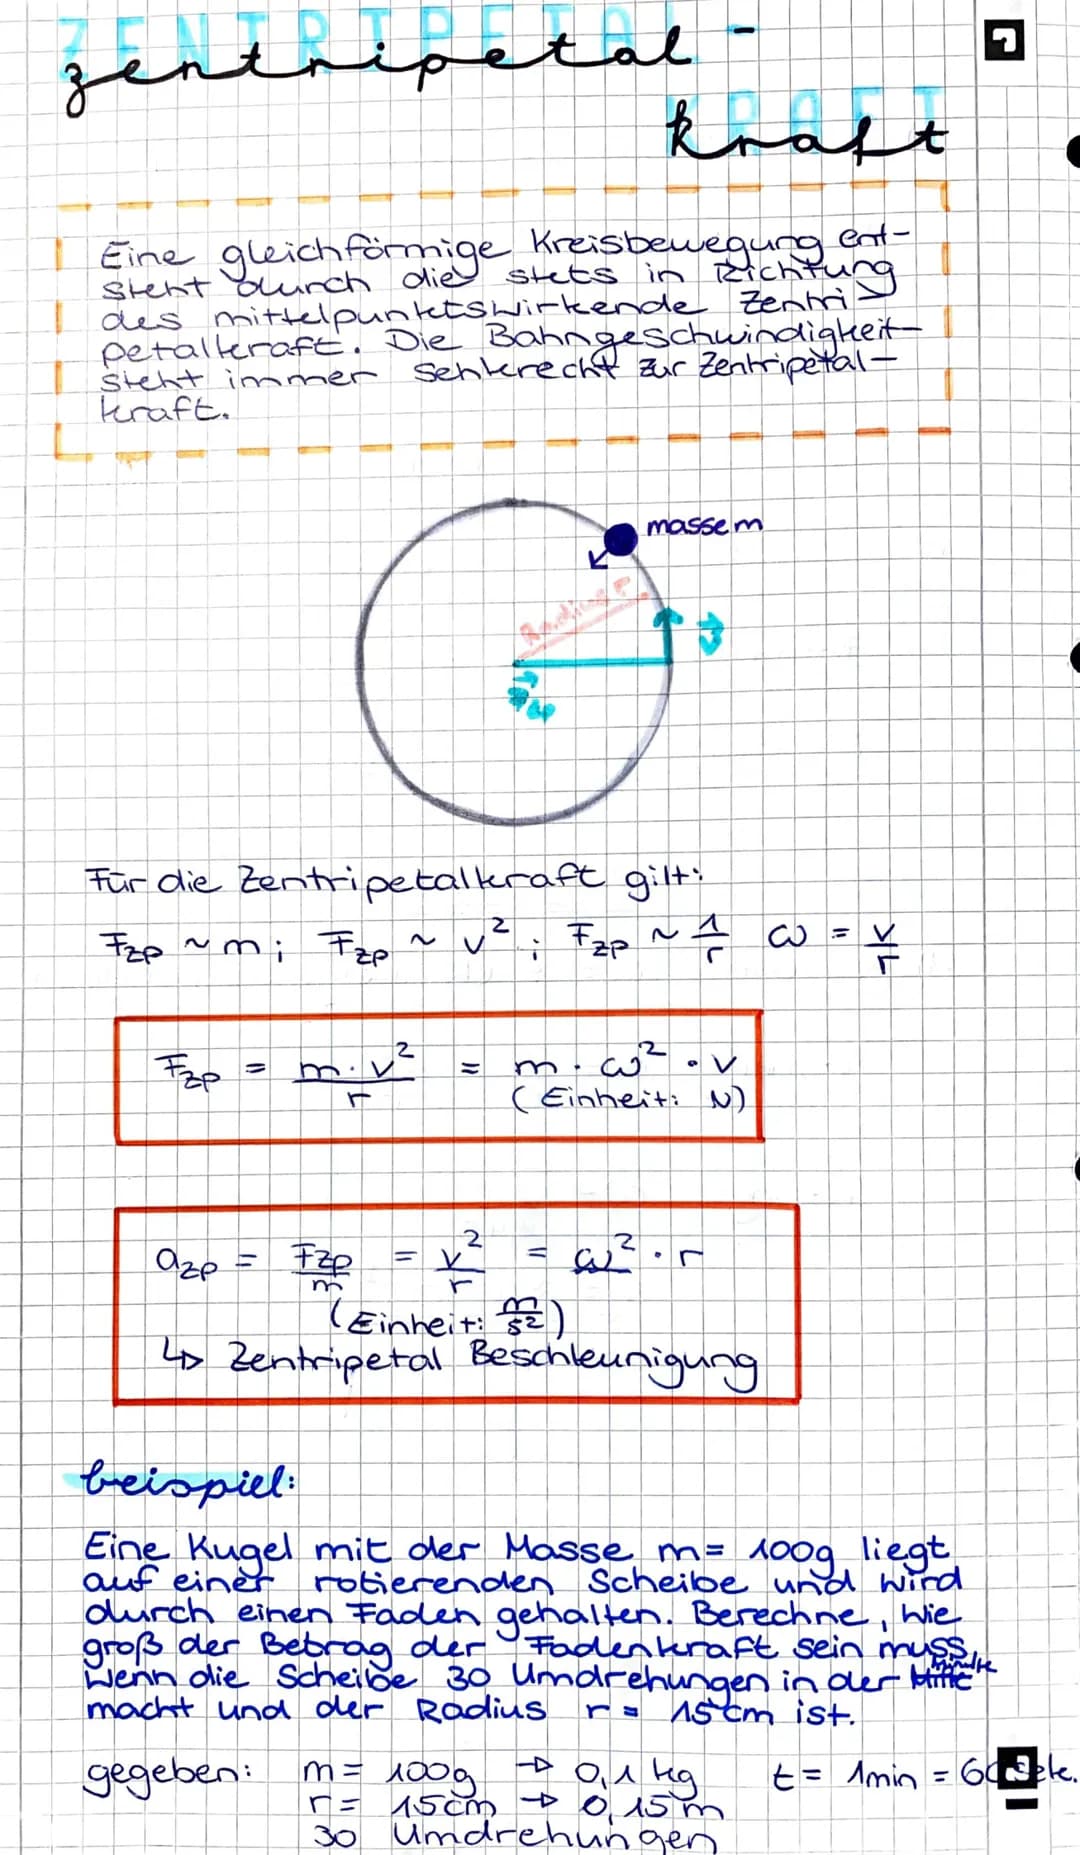 ZENTRIPETAL-
KRAFT
zentripetal-
kraft
Eine gleichförmige Kreisbewegung ent-
steht durch die stets in Richtung
des mittelpunktswirkende Zentri-
petalkraft. Die Bahngeschwindigkeit
steht immer senkrecht zur Zentripetal-
kraft.
masse m
Radius r
v
Für die Zentripetalkraft gilt:
Fzp ~ m; Fzp ~ v²; Fzp ~ 1/r ω = v/r
Fzp = m·v²/r = m·ω²·v
(Einheit: N)
azp = Fzp/m = v²/r = ω²·r
(Einheit: m/s²)
↳ Zentripetal Beschleunigung
beispiel:
Eine Kugel mit der Masse m= 100g liegt
auf einer rotierenden Scheibe und wird
durch einen Faden gehalten. Berechne, wie
groß der Betrag der Fadenkraft sein muss,
wenn die Scheibe 30 Umdrehungen in der Minute
macht und der Radius r = 15cm ist.
gegeben: m= 100g → 0,1 kg t= 1min = 60sek.
r= 15cm → 0,15m
30 Umdrehungen